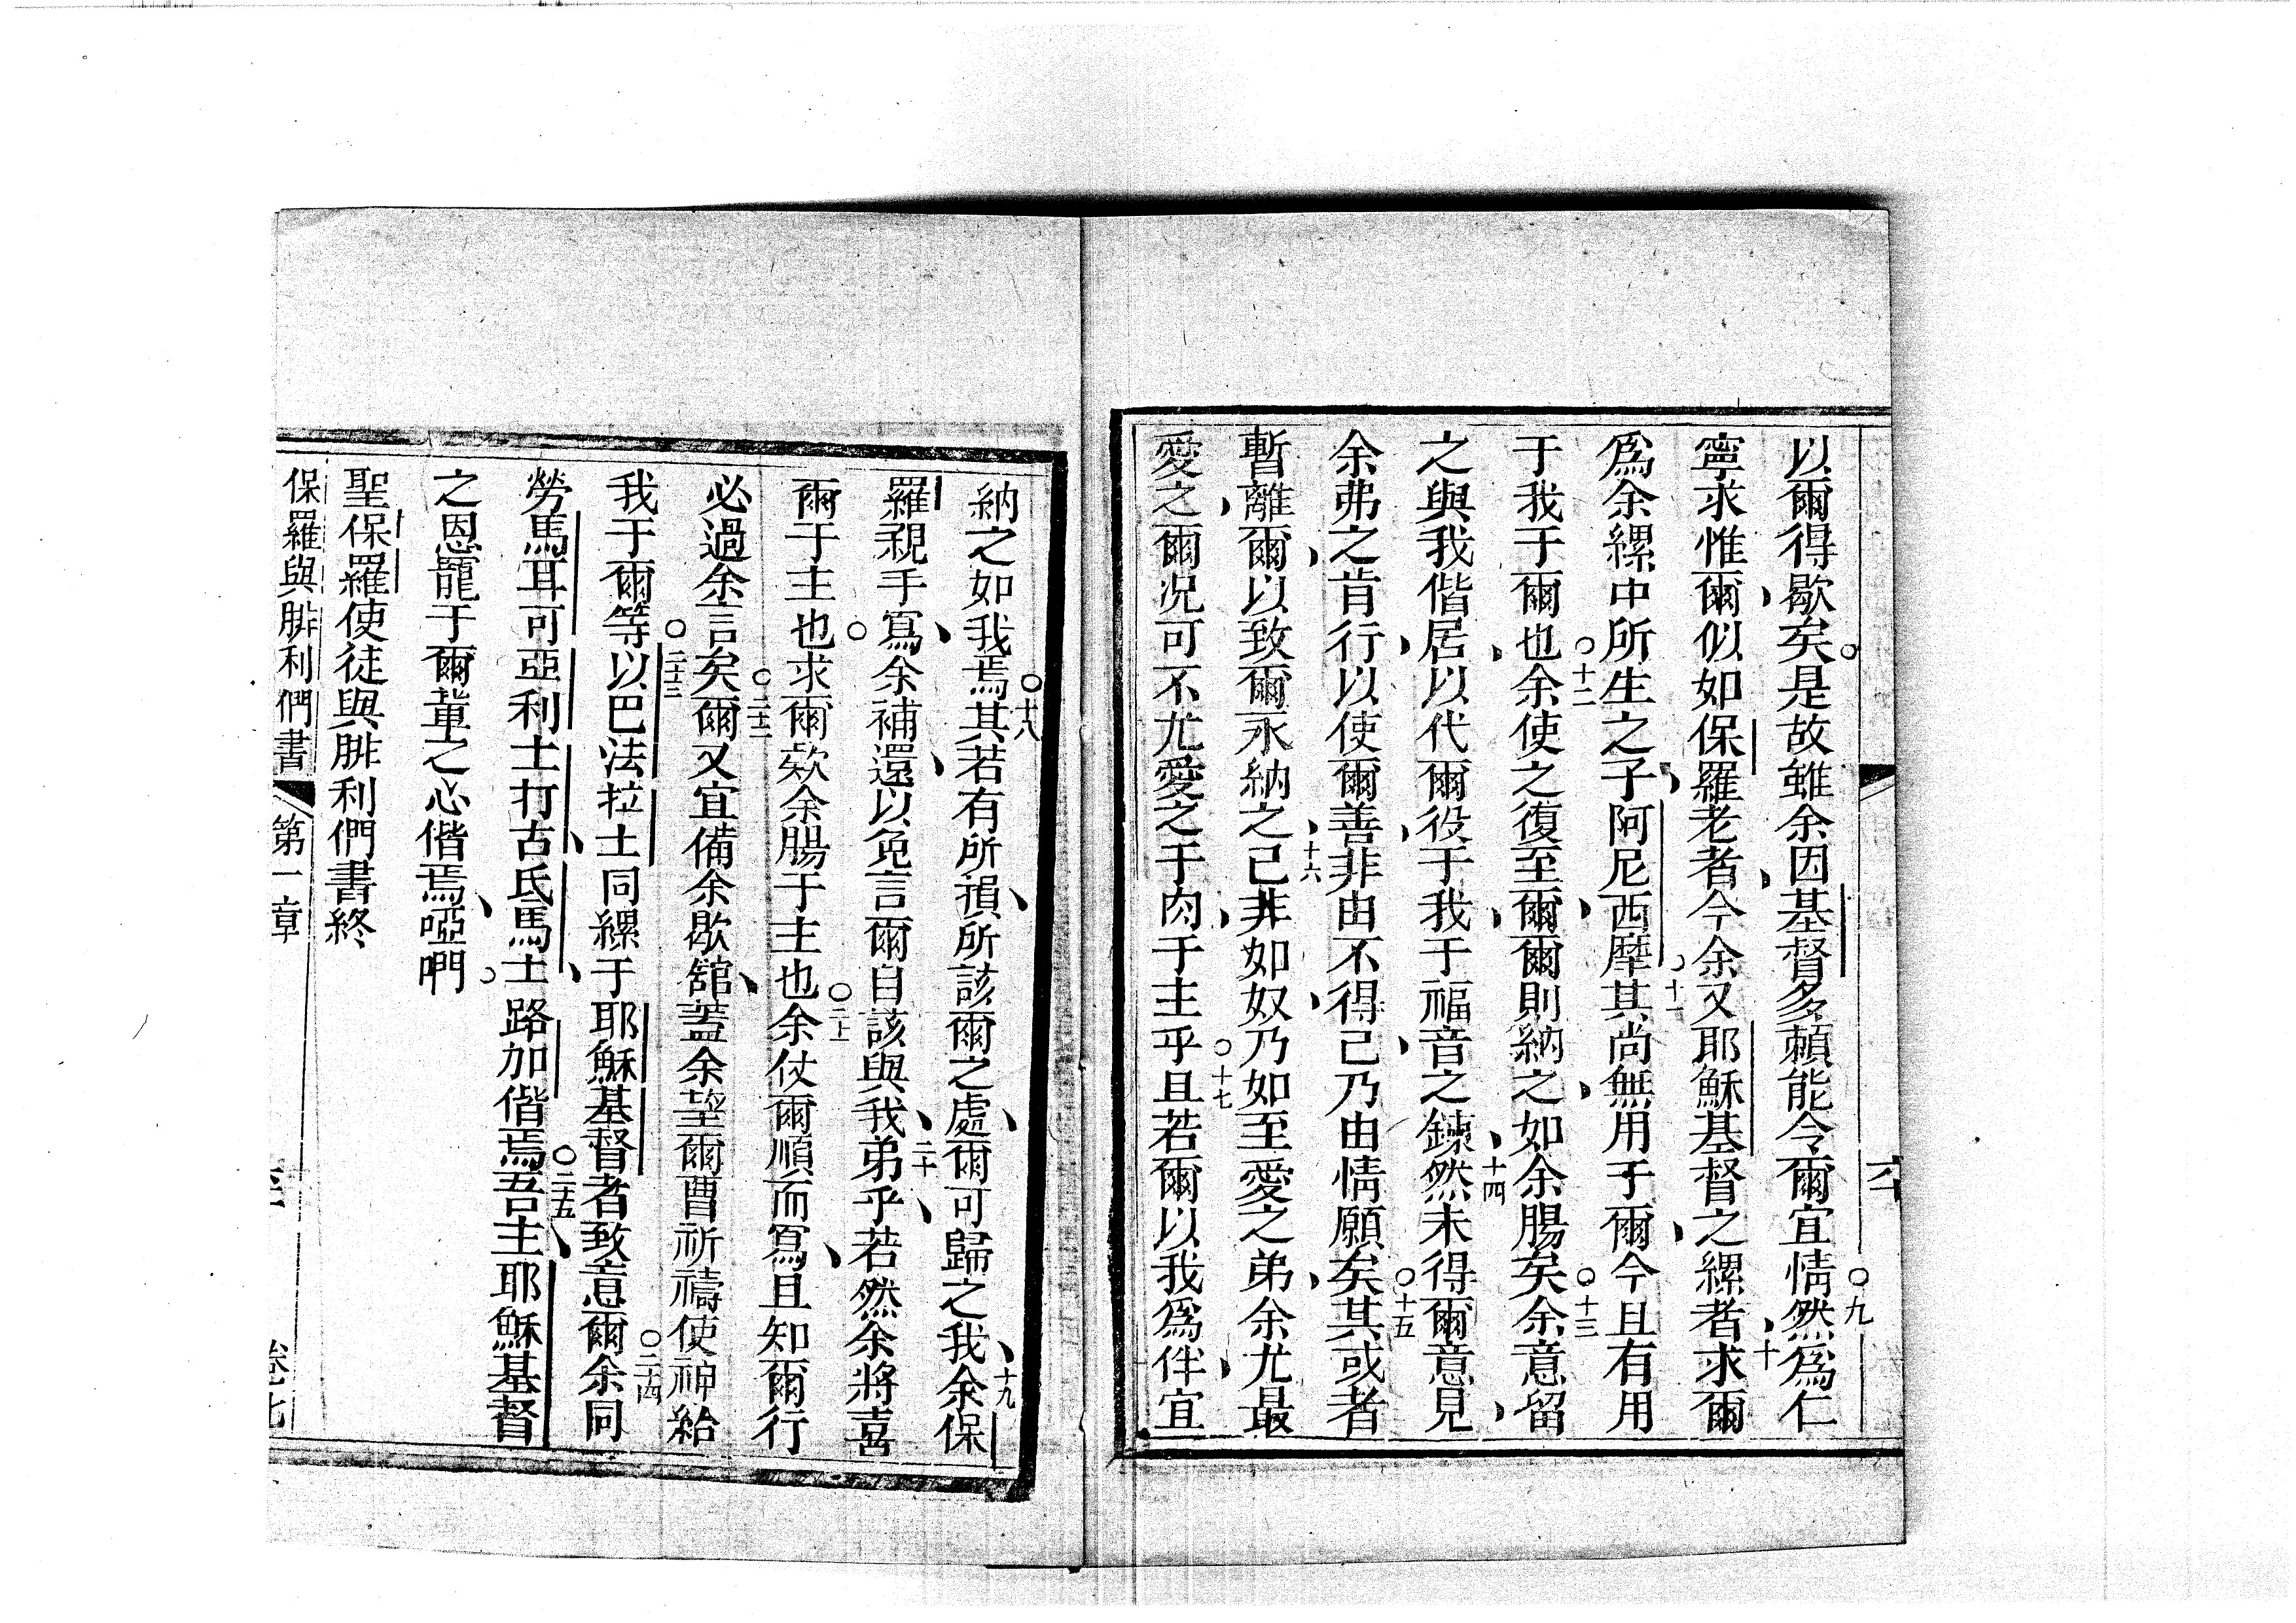 以爾得歇矣○是故雖余因基督多賴能令爾宜情○九然爲仁
寧求惟爾、似如保羅老者、今余又耶穌基督之縲者、十求爾
爲余縲中所生之子、阿尼西摩○十一其尚無用于爾、今且有用
于我于爾也○十二余使之復至爾、爾則納之、如余腸矣○十三余意留
之與我偕居、以代爾役于我、于福音之鍊、十四然未得爾意見、
余弗之肯行、以使爾善、非由不得已、乃由情願矣○十五其或者
暫離爾、以致爾永納之、十六已非如奴、乃如至愛之弟、余尤最
愛之、爾况可不尤愛之于肉、于主乎○十七且若爾以我爲伴、宜
納之如我焉○十八其若有所損、所該爾之處、爾可歸之我、十九余保
羅親手寫、余補還、以免言爾自該與我、二十弟乎、若然余將喜
爾于主也○求爾欸余腸于主也○二上余仗爾順而寫、且知爾行
必過余言矣○二十二爾又宜備余歇舘、蓋余望爾曹祈禱使神給
我于爾等○二十三以巴法拉士同縲于耶穌基督者致意爾○二十四余同
勞馬耳可亞利士打古、氏馬士、路加偕焉○二十五吾主、耶穌基督
之恩寵于爾軰之心偕焉、啞吶○
聖保羅使徒與腓利們書終
保羅與腓利們書 第一章